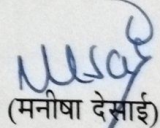 (मनीषा देसाई)